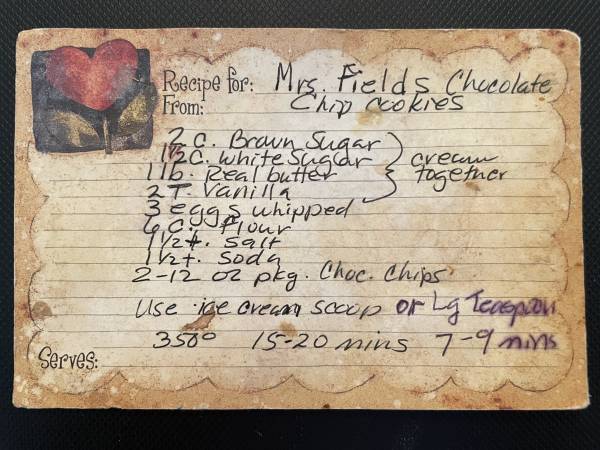 Recipe for: Mrs. Fields Chocolate
From: Chip cookies
2 c. Brown Sugar
1 1/2 c. white sugar
1 lb. Real butter
2 T. vanilla
cream
together
3 eggs whipped
6 c. flour
1 1/2 t. salt
1 1/2 t. soda
2-12 oz pkg. Choc. Chips
Use ice cream scoop or Lg Teaspoon
350° 15-20 mins 7-9 mins
Serves: